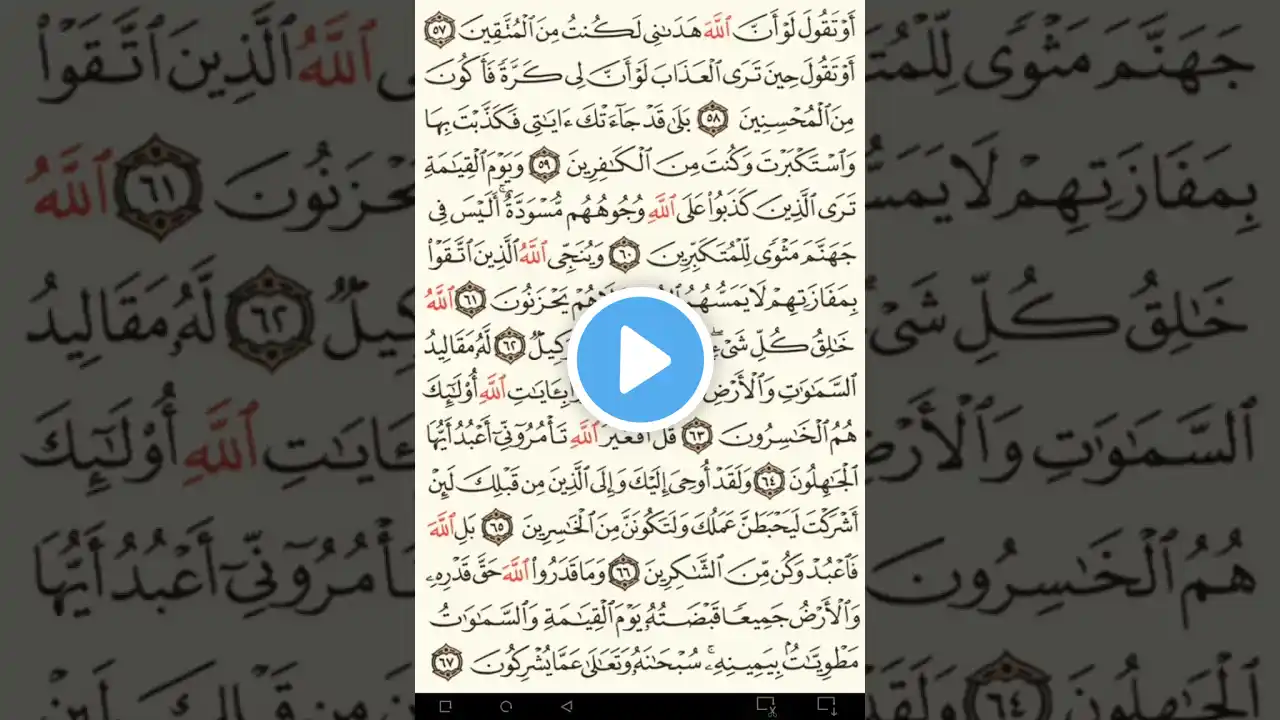 أَوْ تَقُولَ لَوْ أَنَّ ٱللَّهَ هَدَىٰنِى لَكُنتُ مِنَ ٱلْمُتَّقِينَ ٥٧
أَوْ تَقُولَ حِينَ تَرَى ٱلْعَذَابَ لَوْ أَنَّ لِى كَرَّةً فَأَكُونَ
مِنَ ٱلْمُحْسِنِينَ ٥٨ بَلَىٰ قَدْ جَآءَتْكَ ءَايَٰتِى فَكَذَّبْتَ بِهَا
وَٱسْتَكْبَرْتَ وَكُنتَ مِنَ ٱلْكَٰفِرِينَ ٥٩ وَيَوْمَ ٱلْقِيَٰمَةِ
تَرَى ٱلَّذِينَ كَذَبُوا۟ عَلَى ٱللَّهِ وُجُوهُهُم مُّسْوَدَّةٌ ۚ أَلَيْسَ فِى
جَهَنَّمَ مَثْوًى لِّلْمُتَكَبِّرِينَ ٦٠ وَيُنَجِّى ٱللَّهُ ٱلَّذِينَ ٱتَّقَوْا۟
بِمَفَازَتِهِمْ لَا يَمَسُّهُمُ هُمْ يَحْزَنُونَ ٦١ ٱللَّهُ
خَٰلِقُ كُلِّ شَىْءٍ ۖ وَكِيلٌ ٦٢ لَّهُۥ مَقَالِيدُ
ٱلسَّمَٰوَٰتِ وَٱلْأَرْضِ بِـَٔايَٰتِ ٱللَّهِ أُو۟لَٰٓئِكَ
هُمُ ٱلْخَٰسِرُونَ ٦٣ قُلْ أَفَغَيْرَ ٱللَّهِ تَأْمُرُوٓنِّىٓ أَعْبُدُ أَيُّهَا
ٱلْجَٰهِلُونَ ٦٤ وَلَقَدْ أُوحِىَ إِلَيْكَ وَإِلَى ٱلَّذِينَ مِن قَبْلِكَ لَئِنْ
أَشْرَكْتَ لَيَحْبَطَنَّ عَمَلُكَ وَلَتَكُونَنَّ مِنَ ٱلْخَٰسِرِينَ ٦٥ بَلِ ٱللَّهَ
فَٱعْبُدْ وَكُن مِّنَ ٱلشَّٰكِرِينَ ٦٦ وَمَا قَدَرُوا۟ ٱللَّهَ حَقَّ قَدْرِهِۦ
وَٱلْأَرْضُ جَمِيعًا قَبْضَتُهُۥ يَوْمَ ٱلْقِيَٰمَةِ وَٱلسَّمَٰوَٰتُ
مَطْوِيَّٰتٌۢ بِيَمِينِهِۦ ۚ سُبْحَٰنَهُۥ وَتَعَٰلَىٰ عَمَّا يُشْرِكُونَ ٦٧